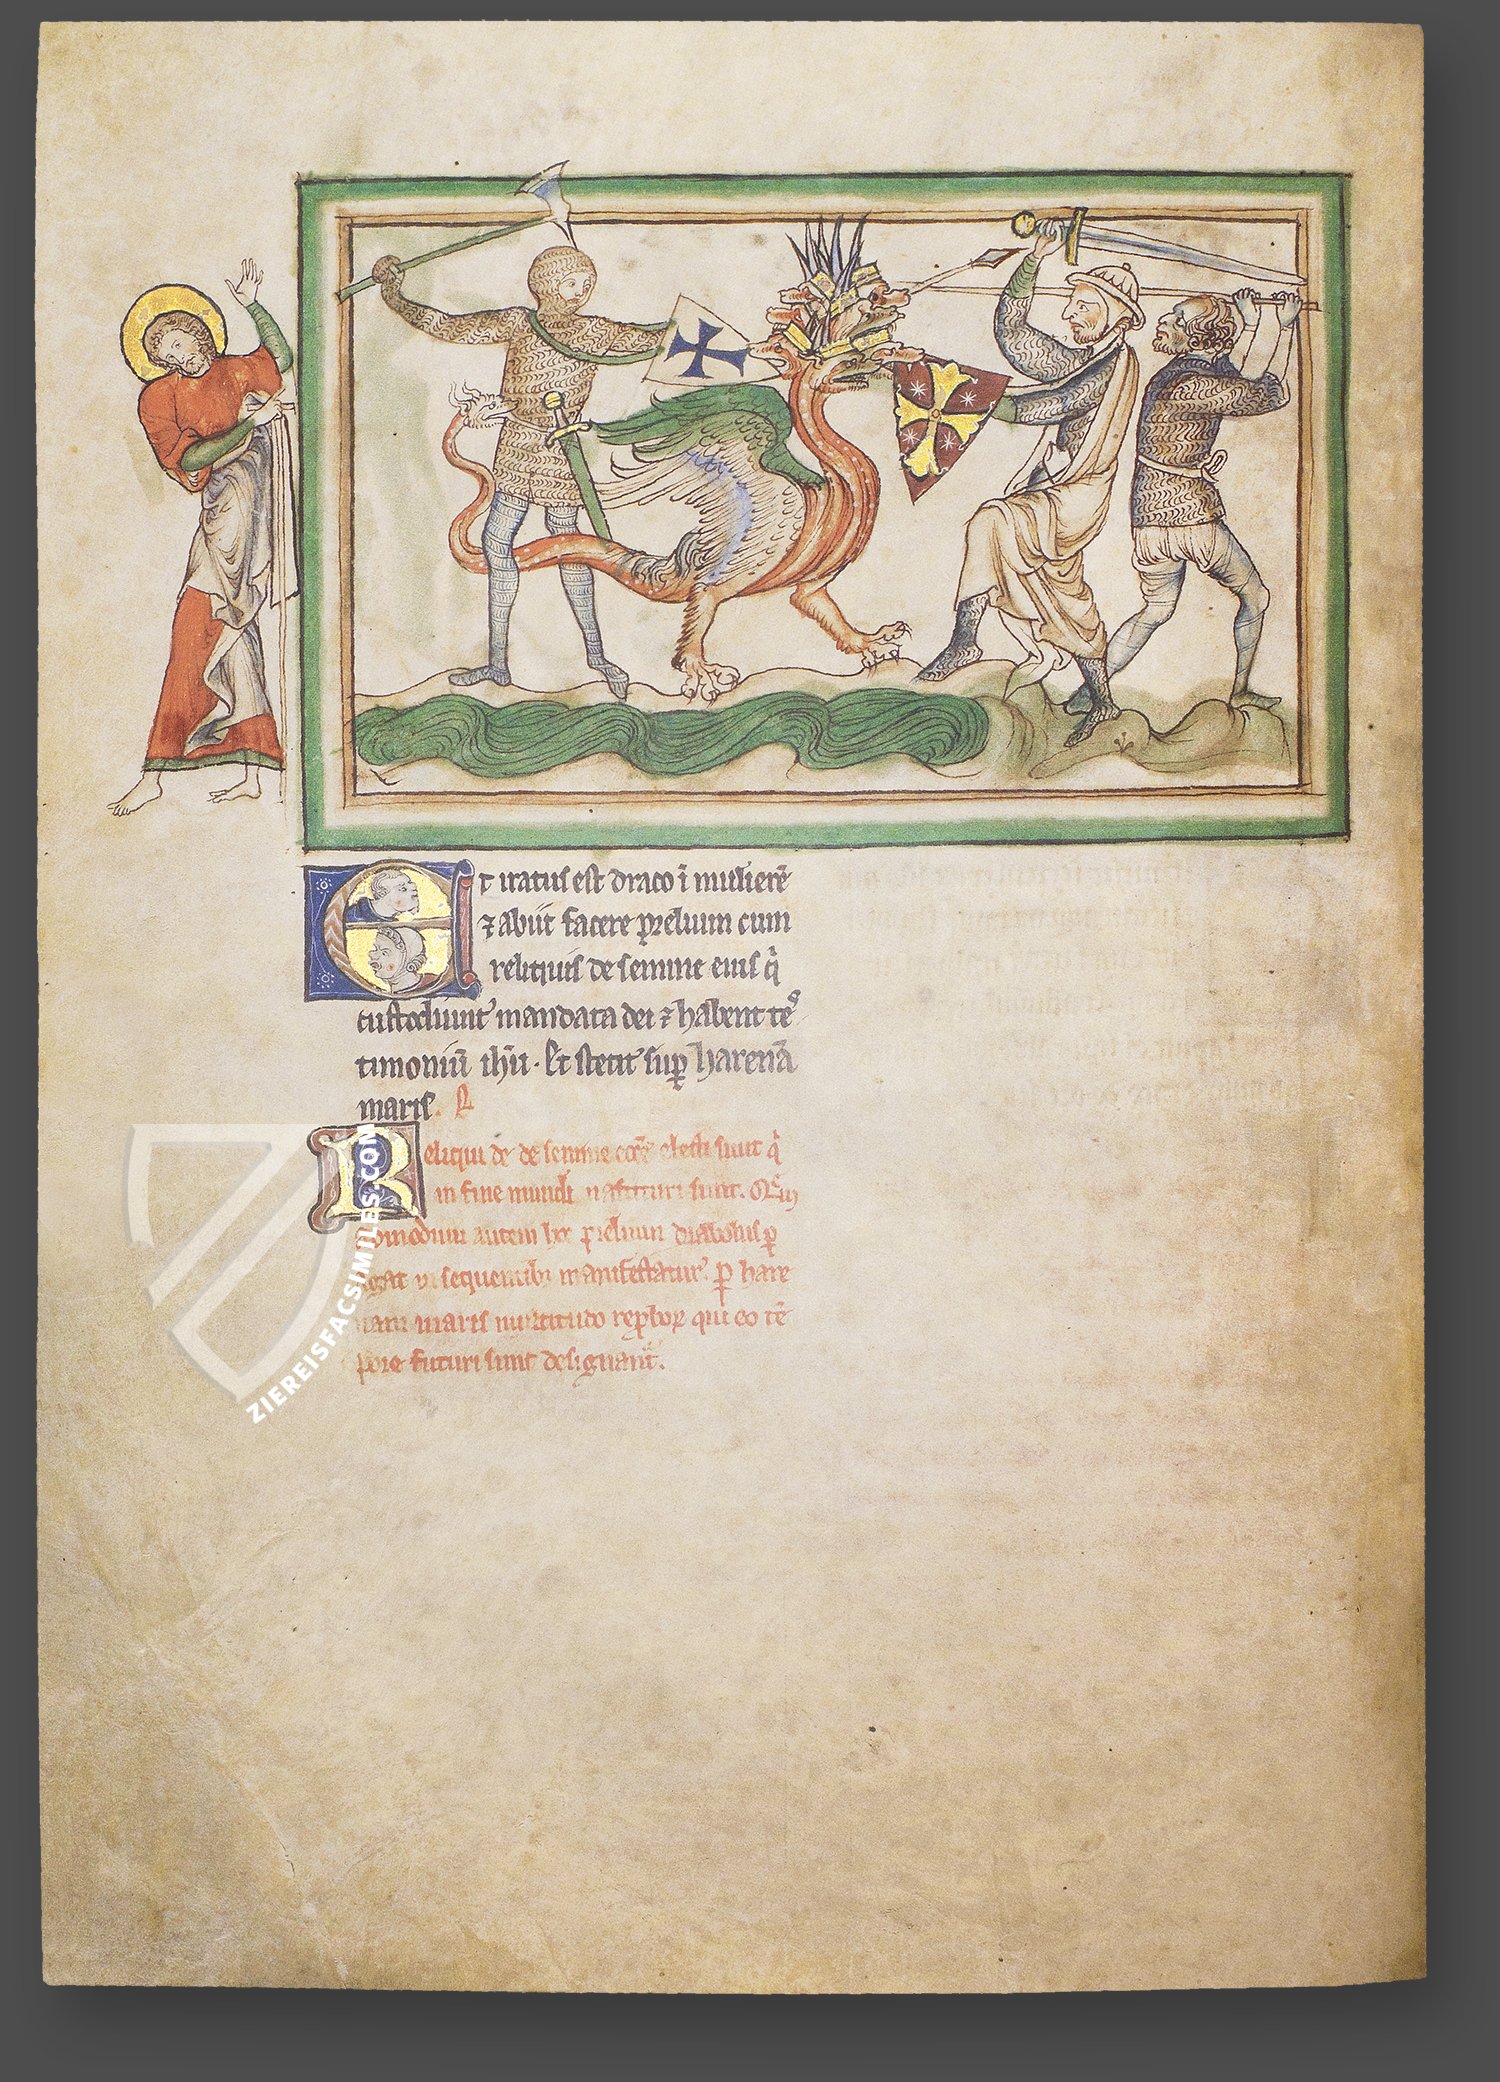 Et iratus est draco ī mulierē
⁊ abiit facere prelium cum
reliquis de semine eius qͥ
custodiunt mandata dei ⁊ habent tes
timoniū ihū . Et stetit sup̱ harenā
maris.
Reliqui de semine electi sunt qͥ
in fine mundi nascituri sunt.
autem hoc prelium diabolus p̱
agat sequentibꝰ manifestatur. p̱ hare
nam maris multitudo reproboꝝ qui eo tē
pore futuri sunt designant᷑.
ZIEREISFACSIMILES.COM